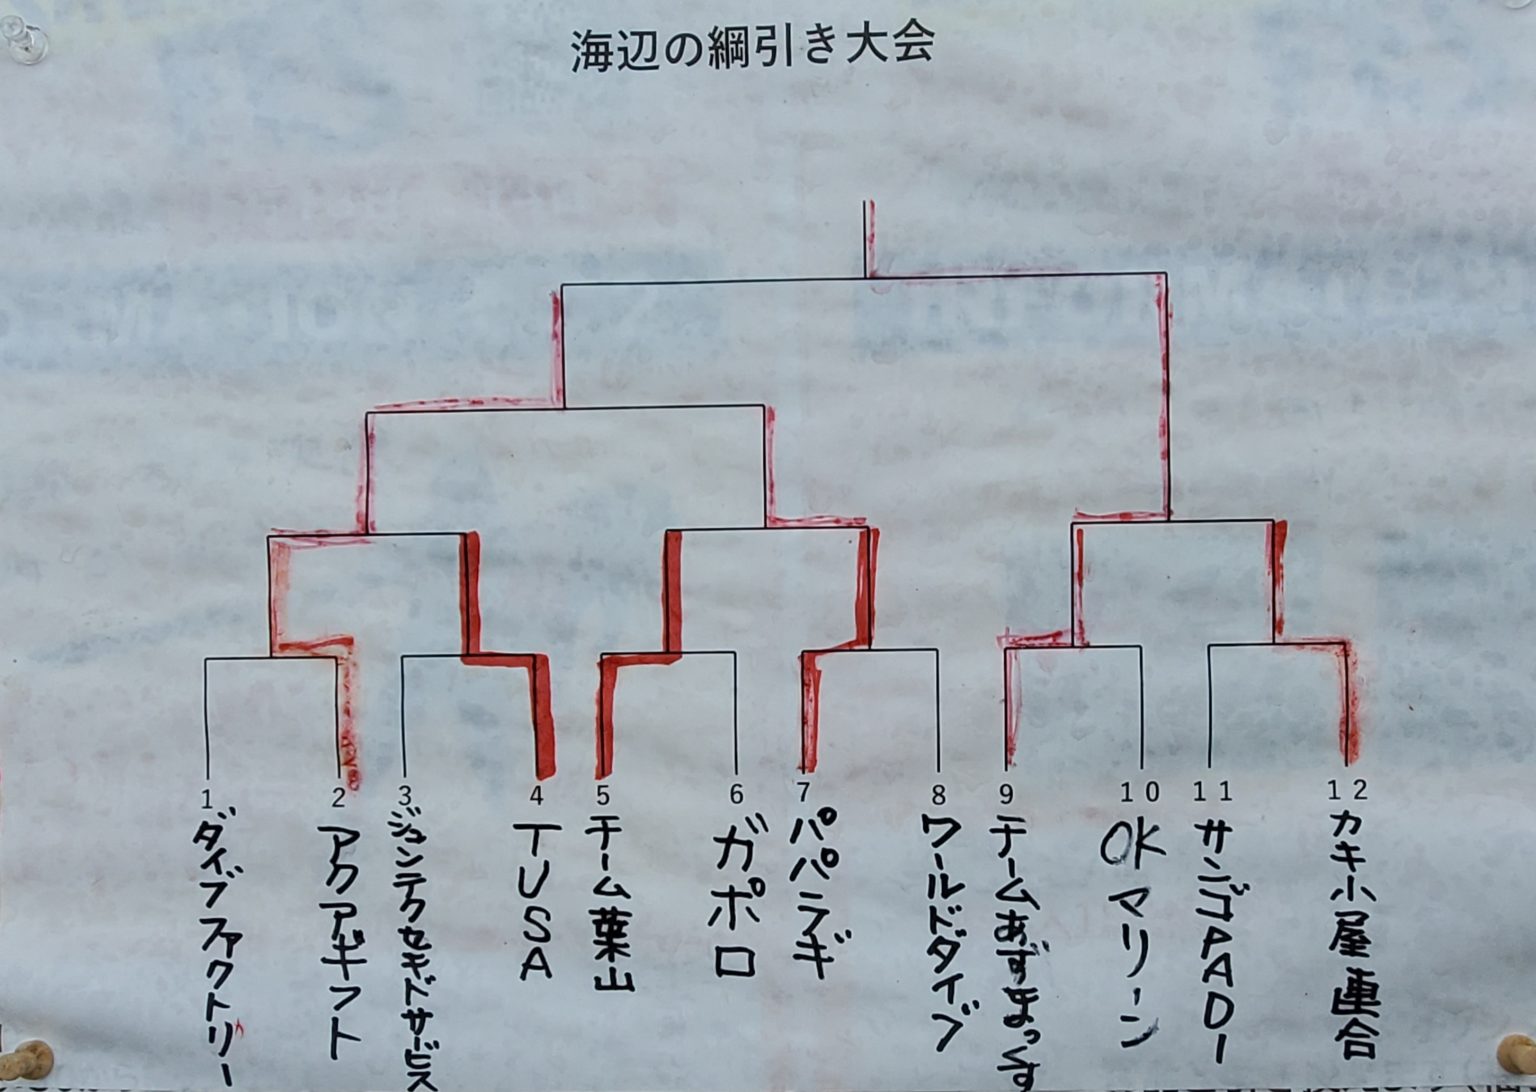 海辺の綱引き大会
1
ダイブファクトリー
2
アクアギフト
3
ジュンテクセキドサービス
4
TUSA
5
チーム葉山
6
ガポロ
7
パパラギ
8
ワールドダイブ
9
チームあずまっくす
10
OKマリーン
11
サンゴPADI
12
カキ小屋連合